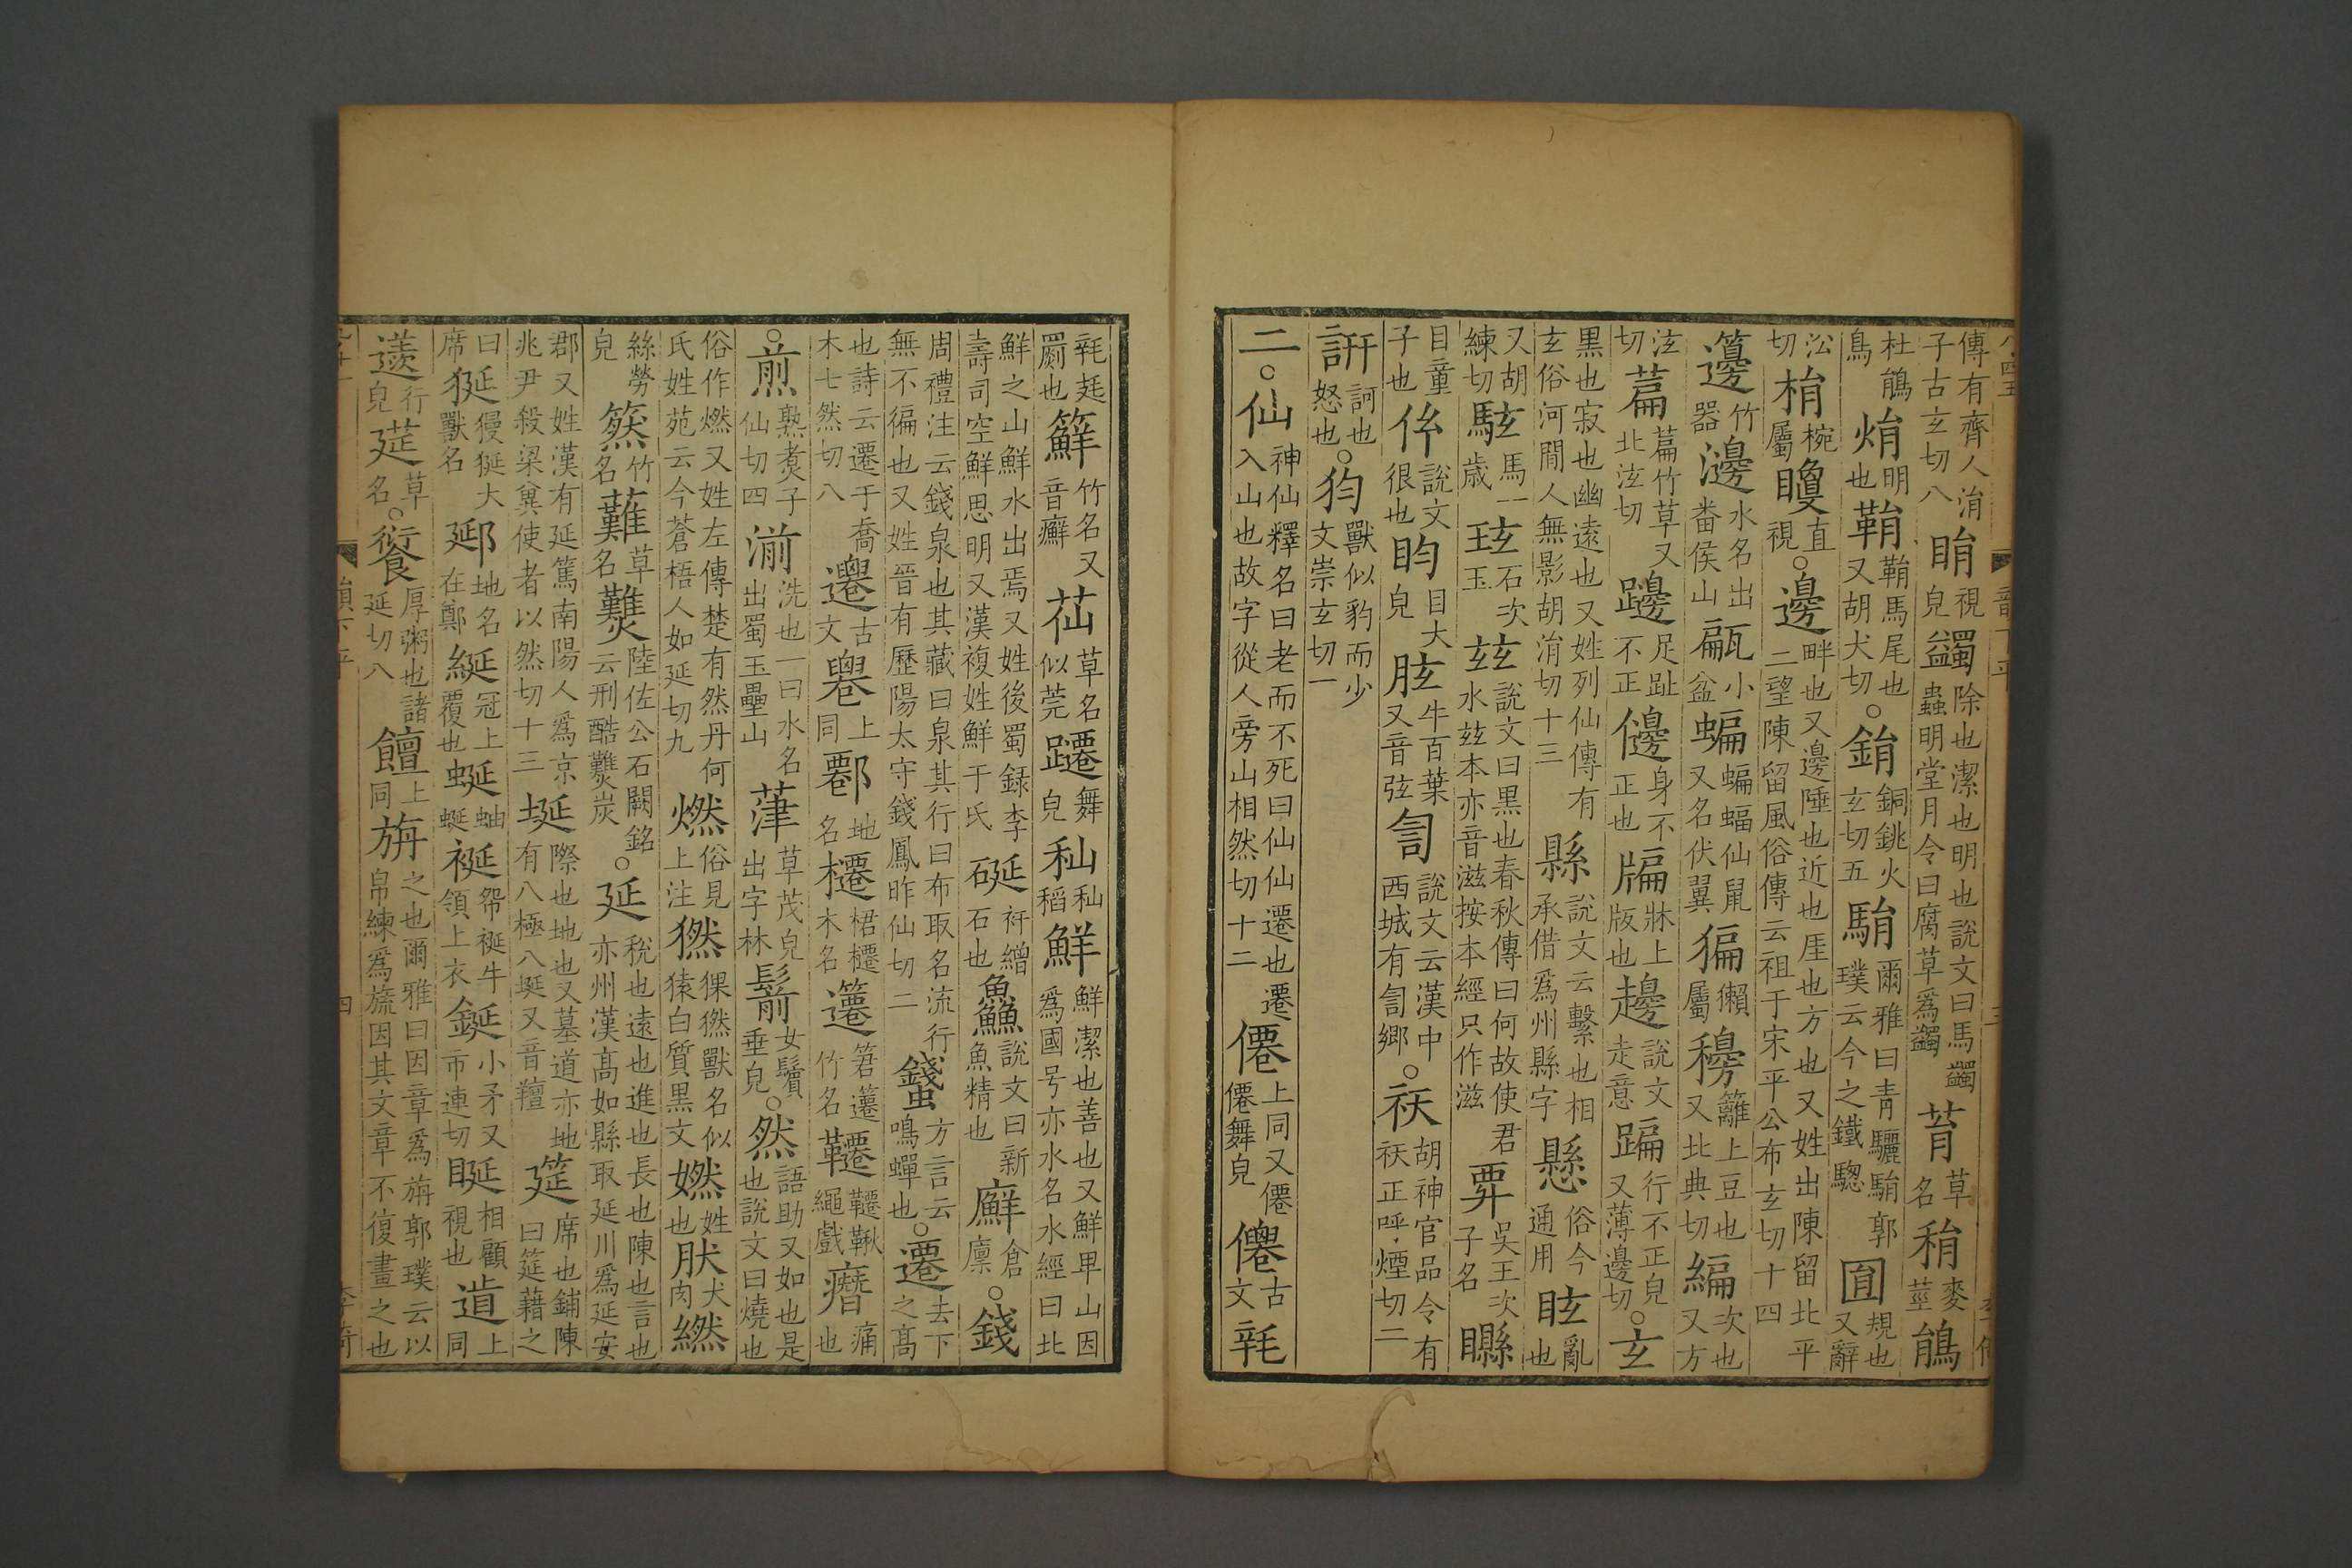 傳有齊人涓子古玄切八䀏視皃蠲除也潔也明也說文曰馬蠲蟲明堂月令曰腐草爲蠲䓈草名䅌麥莖鵑
杜鵑鳥焆明也鞙鞙馬尾也又胡犬切○鋗銅銚火玄切五駽爾雅曰青驪駽郭璞云今之鐵驄圎規也又辭
㳂切梋椀屬矎直視○邊畔也又邊陲也近也厓也方也又姓出陳留北平二望陳留風俗傳云祖于宋平公布玄切十四
籩竹器邊水名出番侯山甂小盆蝙蝙蝠仙鼠又名伏翼猵獺屬䅫籬上豆也又北典切編次也又方
泫切萹萹竹草又北泫切𨘢足趾不正㒙身不正也牑牀上版也䟍說文走意蹁行不正皃又薄邊切○玄
黑也寂也幽遠也又姓列仙傳有玄俗河間人無影胡涓切十三縣說文云繫也相承借爲州縣字懸俗今通用眩亂也
又胡練切䮄馬一歲玹石次玉玆說文曰黑也春秋傳曰何故使君水玆本亦音滋按本經只作滋䍒吳王次子名矎
目童子也伭說文很也盷目大皃胘牛百葉又音弦訇說文云漢中西城有訇鄉○祆胡神官品令有祆正呼煙切二
訮訶也怒也○犳獸似豹而少文崇玄切一
二○仙神仙釋名曰老而不死曰仙仙遷也遷入山也故字從人旁山相然切十二僊上同又僊僊舞皃僲古文𦍑
㲋㲋罽也䉳竹名又音癬苮草名似莞躚舞皃秈秈稻鮮鮮潔也善也又鮮卑山因爲國号亦水名水經曰北
鮮之山鮮水出焉又姓後蜀錄李壽司空鮮思明又漢複姓鮮于氏硟衦繒石也鱻說文曰新魚精也廯倉廩○錢
周禮注云錢泉也其藏曰泉其行曰布取名流行無不徧也又姓晉有歷陽太守錢鳳昨仙切二䗃方言云鳴蟬也○遷去下之高
也詩云遷于喬木七然切八𨗴古文䙴上同鄽地名櫏桾櫏木名䉦箬䉦竹名韆韆鞦繩戲癠痛也
○煎熟煑子仙切四湔洗也一曰水名出蜀玉壘山葏草茂皃出字林鬋女鬢垂皃○然語助又如也是也說文曰燒也
俗作燃又姓左傳楚有然丹何氏姓苑云今蒼梧人如延切九燃俗見上注㹓猓㹓獸名似猿白質黑文嬿姓也肰犬肉繎
絲勞皃䈡竹名蘺草名虇陸佐公石闕銘云刑酷虇炭○延稅也遠也進也長也陳也言也亦州漢高如縣取延川爲延安
郡又姓漢有延篤南陽人爲京兆尹殺梁兾使者以然切十三埏際也地也又墓道亦地有八極八埏又音羶筵席也鋪陳曰筵藉之
曰狿獌狿大獸名郔地名在鄭綖冠上覆也蜒蚰蜒䘰袀䘰牛領上衣鋋小矛又市連切䀽相顧視也𨒂上同
䢡行皃莚草名○餰厚粥也諸延切八饘上同旃之也爾雅曰因章爲旃郭璞云以帛練爲旒因其文章不復畫之也